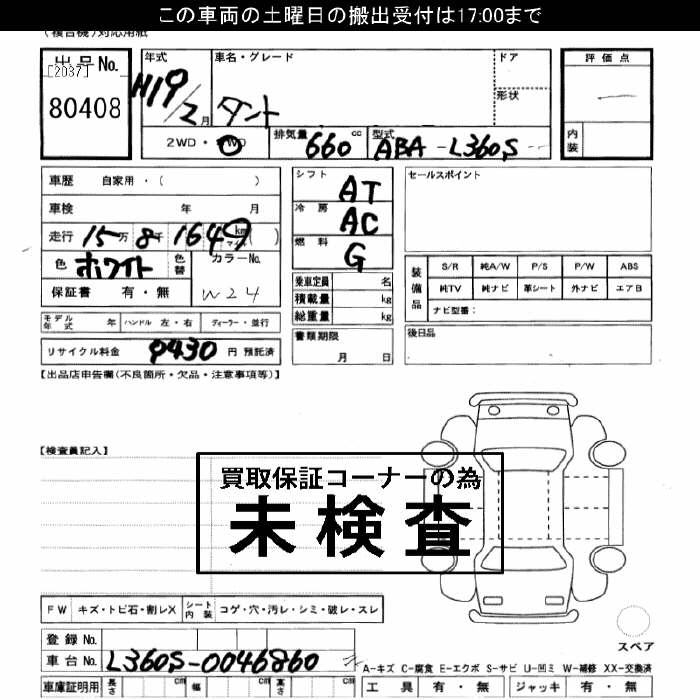 この車両の土曜日の搬出受付は17:00まで
(複合機)対応用紙
出品No.
[2037]
80408
年式
H19/2月
車名・グレード
タント
ドア
形状
評価点
内装
2WD・4WD
排気量 660 cc
型式 ABA-L360S
車歴 自家用・( )
車検 年 月
走行 15万8千1649 km マイル ( )
色 ホワイト 色替 カラーNo. W24
保証書 有・無
シフト AT
冷房 AC
燃料 G
乗車定員 名
積載量 kg
総重量 kg
書類期限
月 日
セールスポイント
装備品
S/R 純A/W P/S P/W ABS
純TV 純ナビ 革シート 外ナビ エアB
ナビ型番:
後日品
モデル年式 年 ハンドル 左・右 ディーラー・並行
リサイクル料金 9430 円 預託済
【出品店申告欄(不良箇所・欠品・注意事項等)】
【検査員記入】
買取保証コーナーの為
未検査
FW キズ・トビ石・割レX シート内装 コゲ・穴・汚レ・シミ・破レ・スレ
登録No.
車台No. L360S-0046860
スペア
A-キズ C-腐食 E-エクボ S-サビ U-凹ミ W-補修 XX-交換済
車庫証明用 長さ cm 幅 cm 高さ cm
工具 有・無 ジャッキ 有・無